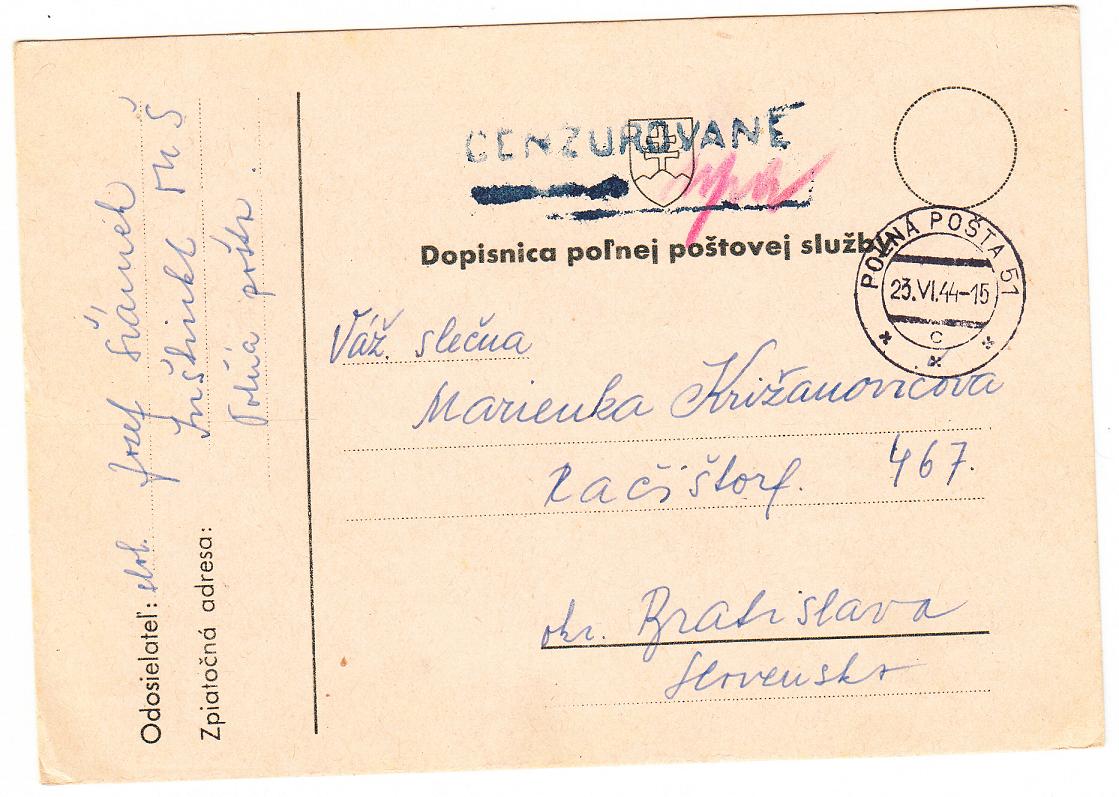 CENZUROVANÉ
Dopisnica poľnej poštovej služby
POĽNÁ POŠTA 51
23.VI.44-15
c
Váž. slečna
Marienka Križanovičova
Račištorf. 467.
okr. Bratislava
Slovensko
Odosielateľ: slob. Jozef
Zpiatočná adresa:
Poľná pošta.